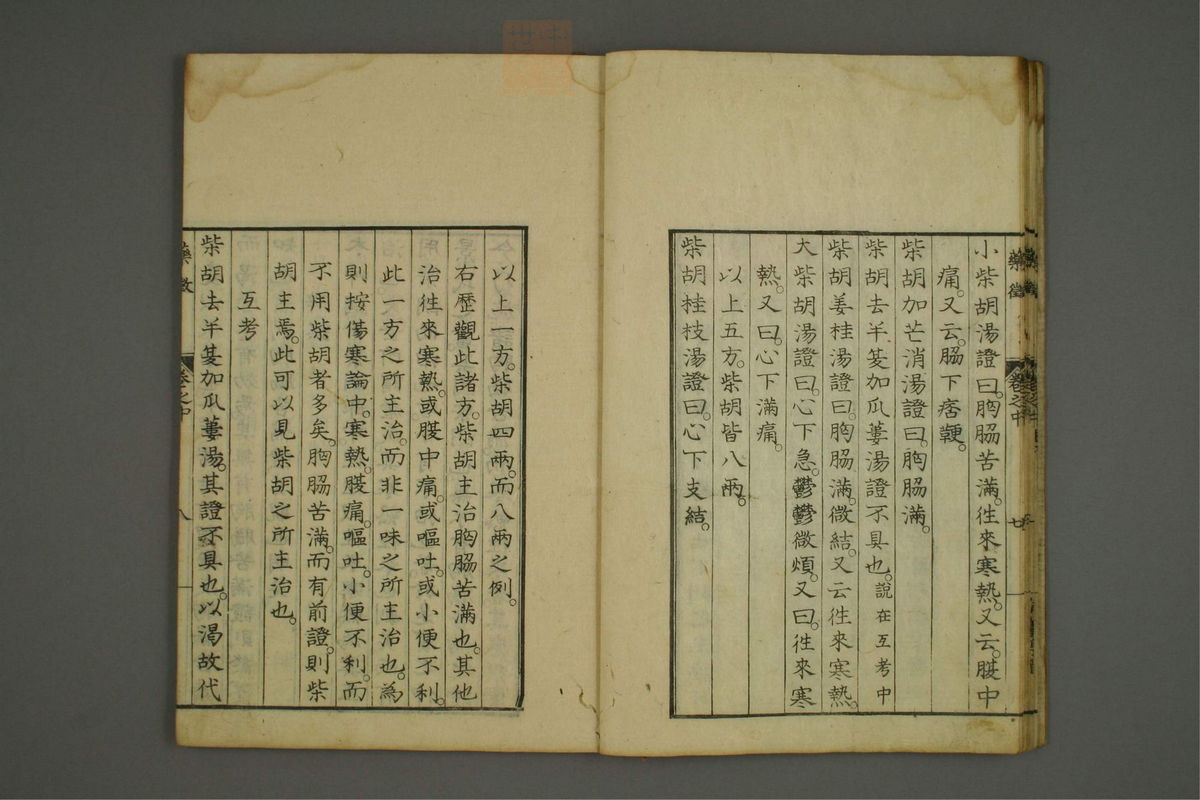 小柴胡湯證曰。胸脇苦滿。徃來寒熱。又云。腹中
痛。又云。脇下痞鞕。
柴胡加芒消湯證曰。胸脇滿。
柴胡去半夏加瓜蔞湯證不具也。說在互考中
柴胡姜桂湯證曰。胸脇滿。微結。又云徃來寒熱。
大柴胡湯證曰。心下急。鬱鬱微煩。又曰。徃來寒
熱。又曰。心下滿痛。
以上五方。柴胡皆八兩。
柴胡桂枝湯證曰。心下支結。
藥徵
卷之中
七
以上一方。柴胡四兩。而八兩之例。
右歷觀此諸方。柴胡主治胸脇苦滿也。其他
治徃來寒熱。或腹中痛。或嘔吐。或小便不利。
此一方之所主治。而非一味之所主治也。為
則按傷寒論中。寒熱。腹痛。嘔吐。小便不利。而
不用柴胡者多矣。胸脇苦滿。而有前證。則柴
胡主焉。此可以見柴胡之所主治也。
互考
柴胡去半夏加瓜蔞湯。其證不具也。以渴故代
藥徵
卷之中
八